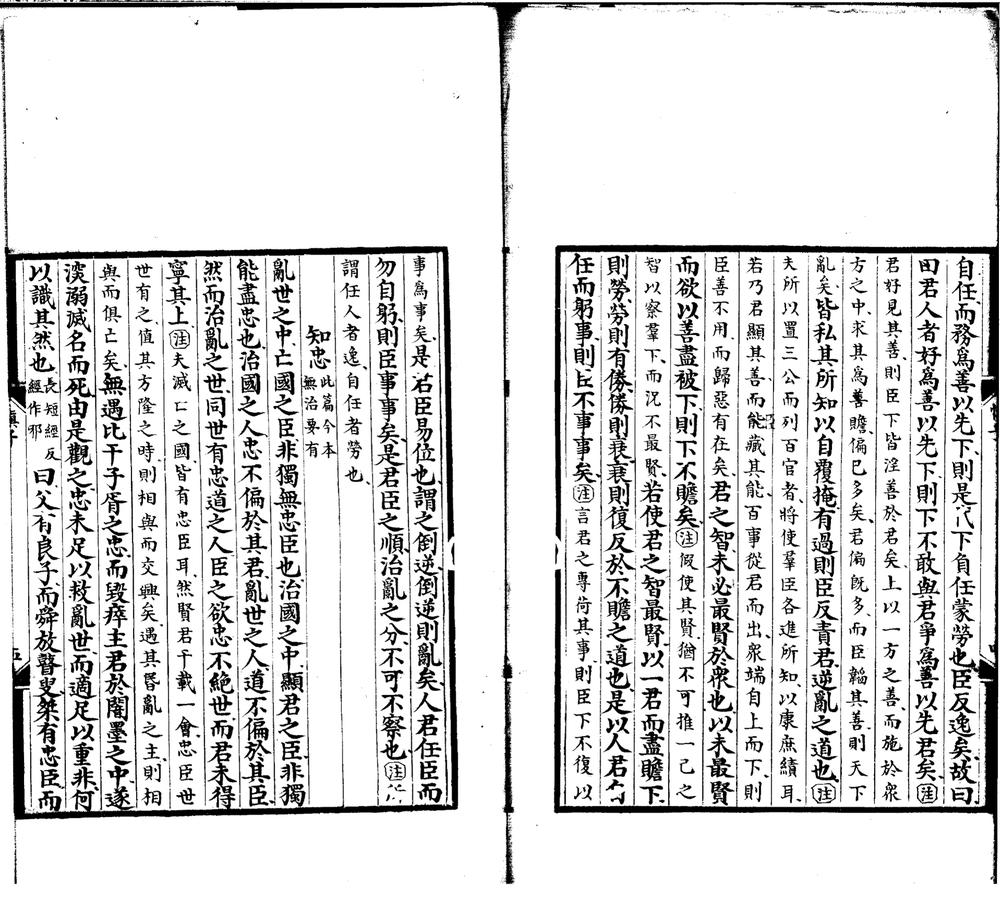 自任而務爲善以先下則是代下負任蒙勞也臣反逸矣故曰
田君人者好爲善以先下則下不敢與君爭爲善以先君矣注
君好見其善則臣下皆淫善於君矣上以一方之善而施於衆
方之中求其爲善贍偏已多矣君偏旣多而臣韜其善則天下
亂矣皆私其所知以自覆掩有過則臣反責君逆亂之道也注
夫所以置三公而列百官者將使羣臣各進所知以康庶績耳
若乃君顯其善而能藏其能百事從君而出衆端自上而下則
臣善不用而歸惡有在矣君之智未必最賢於衆也以未最賢
而欲以善盡被下則下不贍矣注假使其賢猶不可推一己之
智以察羣下而況不最賢若使君之智最賢以一君而盡贍下
則勞勞則有倦倦則衰衰則復反於不贍之道也是以人君自
任而躬事則臣不事事矣注言君之專荷其事則臣下不復以
事爲事矣是君臣易位也謂之倒逆倒逆則亂矣人君任臣而
勿自躬則臣事事矣是君臣之順治亂之分不可不察也注所
謂任人者逸自任者勞也
知忠此篇今本無治要有
亂世之中亡國之臣非獨無忠臣也治國之中顯君之臣非獨
能盡忠也治國之人忠不偏於其君亂世之人道不偏於其臣
然而治亂之世同世有忠道之人臣之欲忠不絕世而君未得
寧其上注夫滅亡之國皆有忠臣耳然賢君千載一會忠臣世
世有之值其方隆之時則相與而交興矣遇其昬亂之主則相
與而俱亡矣無遇比干子胥之忠而毀瘁主君於闇墨之中遂
淡溺滅名而死由是觀之忠未足以救亂世而適足以重非何
以識其然也長短經反經作邪曰父有良子而舜放瞽叟桀有忠臣而
愼子
五